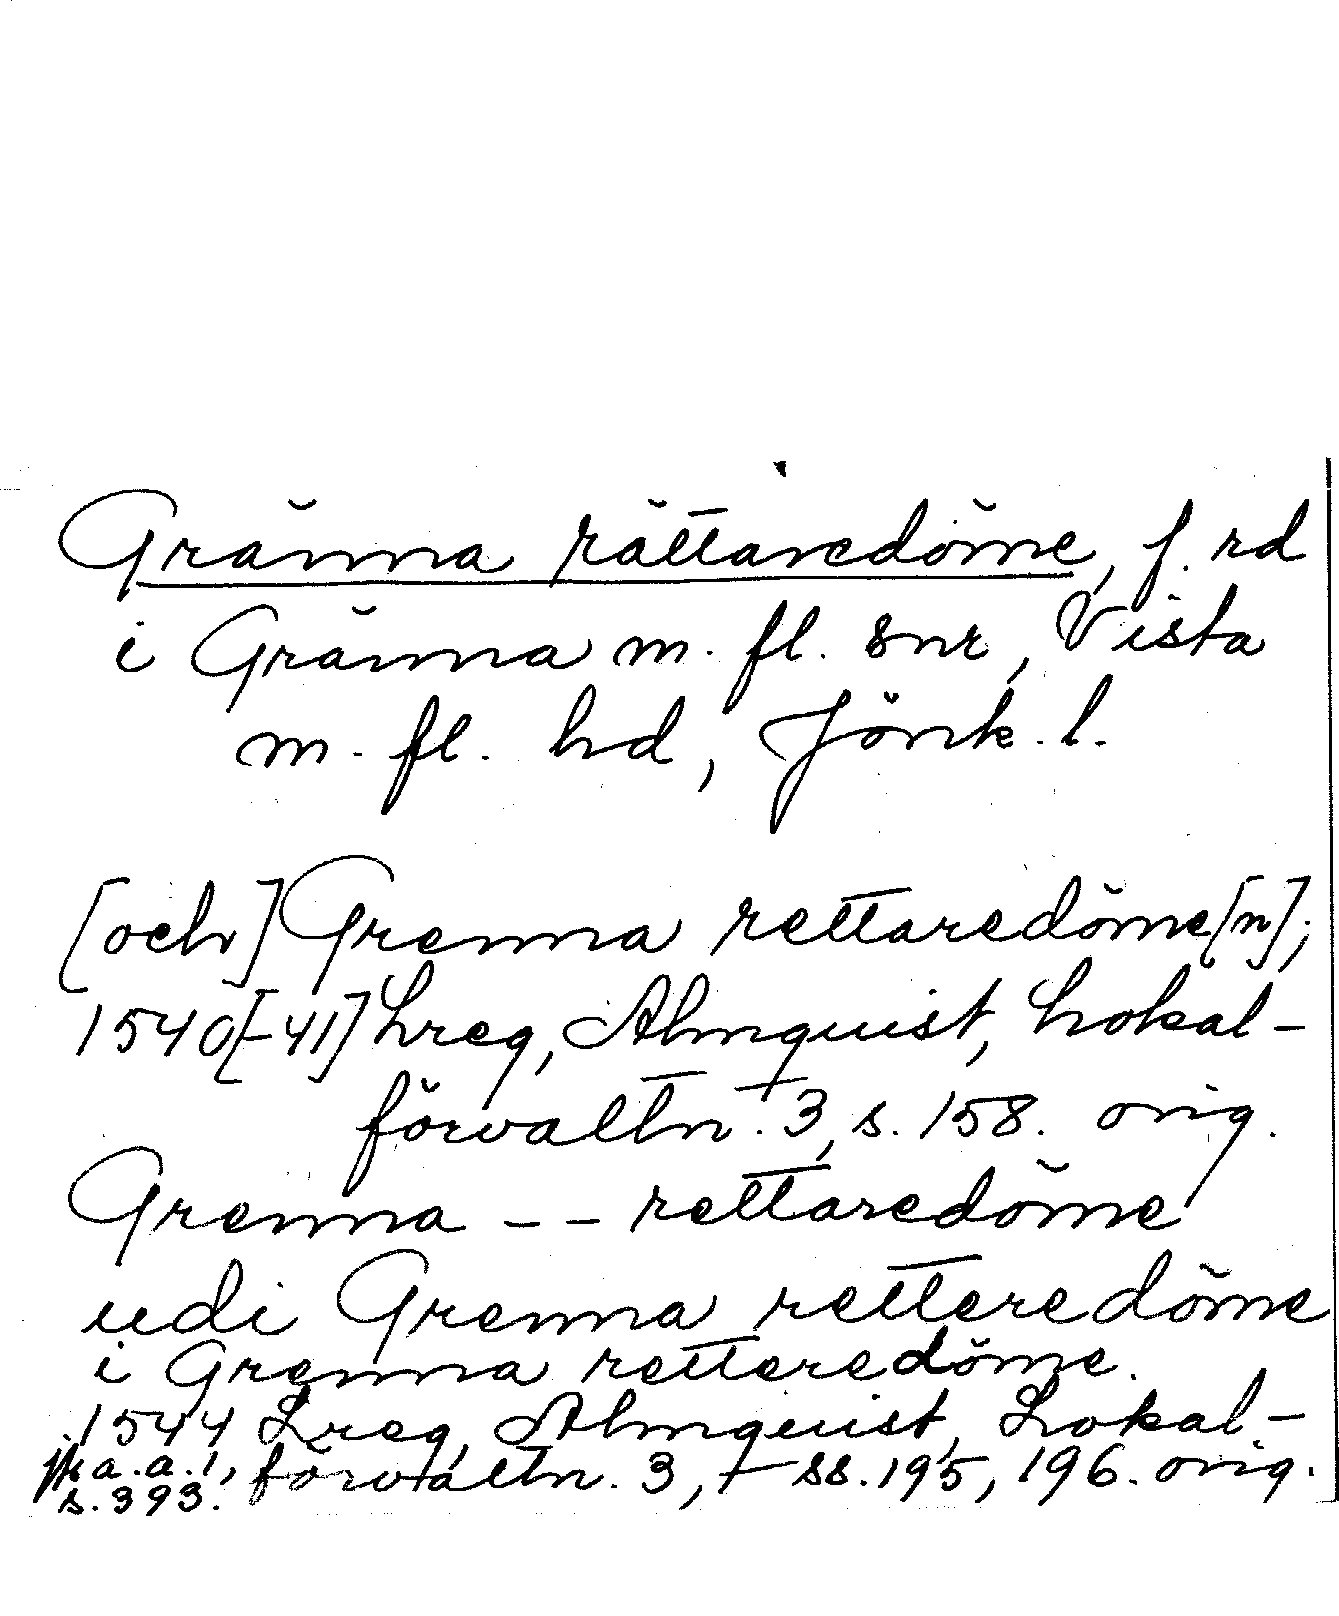 Gränna rättaredöme, f. rd
i Gränna m. fl. snr, Vista
m. fl. hd, Jönk. l.
[och] Grenna rettaredöme[n];
1540[-41] Lreg, Almquist, Lokal-
förvaltn. 3, s. 158. orig.
Grenna -- rettaredöme
udi Grenna retteredöme
i Grenna retteredöme.
1544 Lreg, Almquist, Lokal-
förvaltn. 3, ss. 195, 196. orig.
jfr a. a. 1,
s. 393.